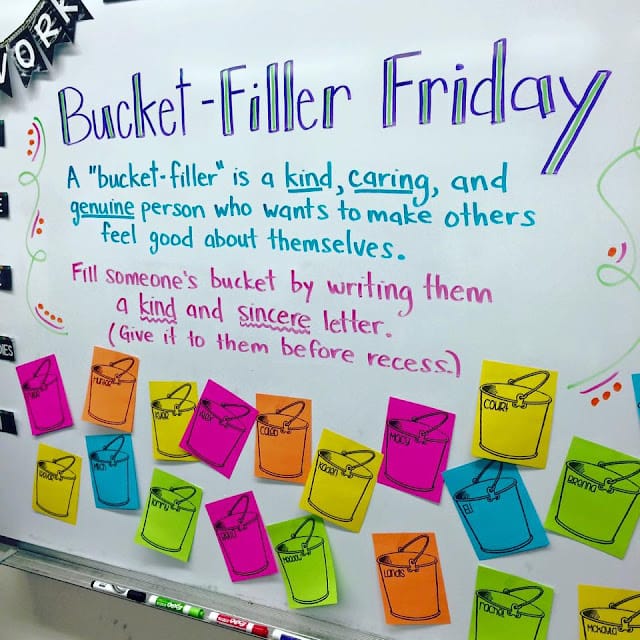 WORK
Bucket-Filler Friday
A "bucket-filler" is a kind, caring, and
genuine person who wants to make others
feel good about themselves.
Fill someone's bucket by writing them
a kind and sincere letter.
(Give it to them before recess.)
Court
Macy
Caleb
Karen
Brenna
EJ
Landis
Rachel
McKayla
EXPO
EXPO